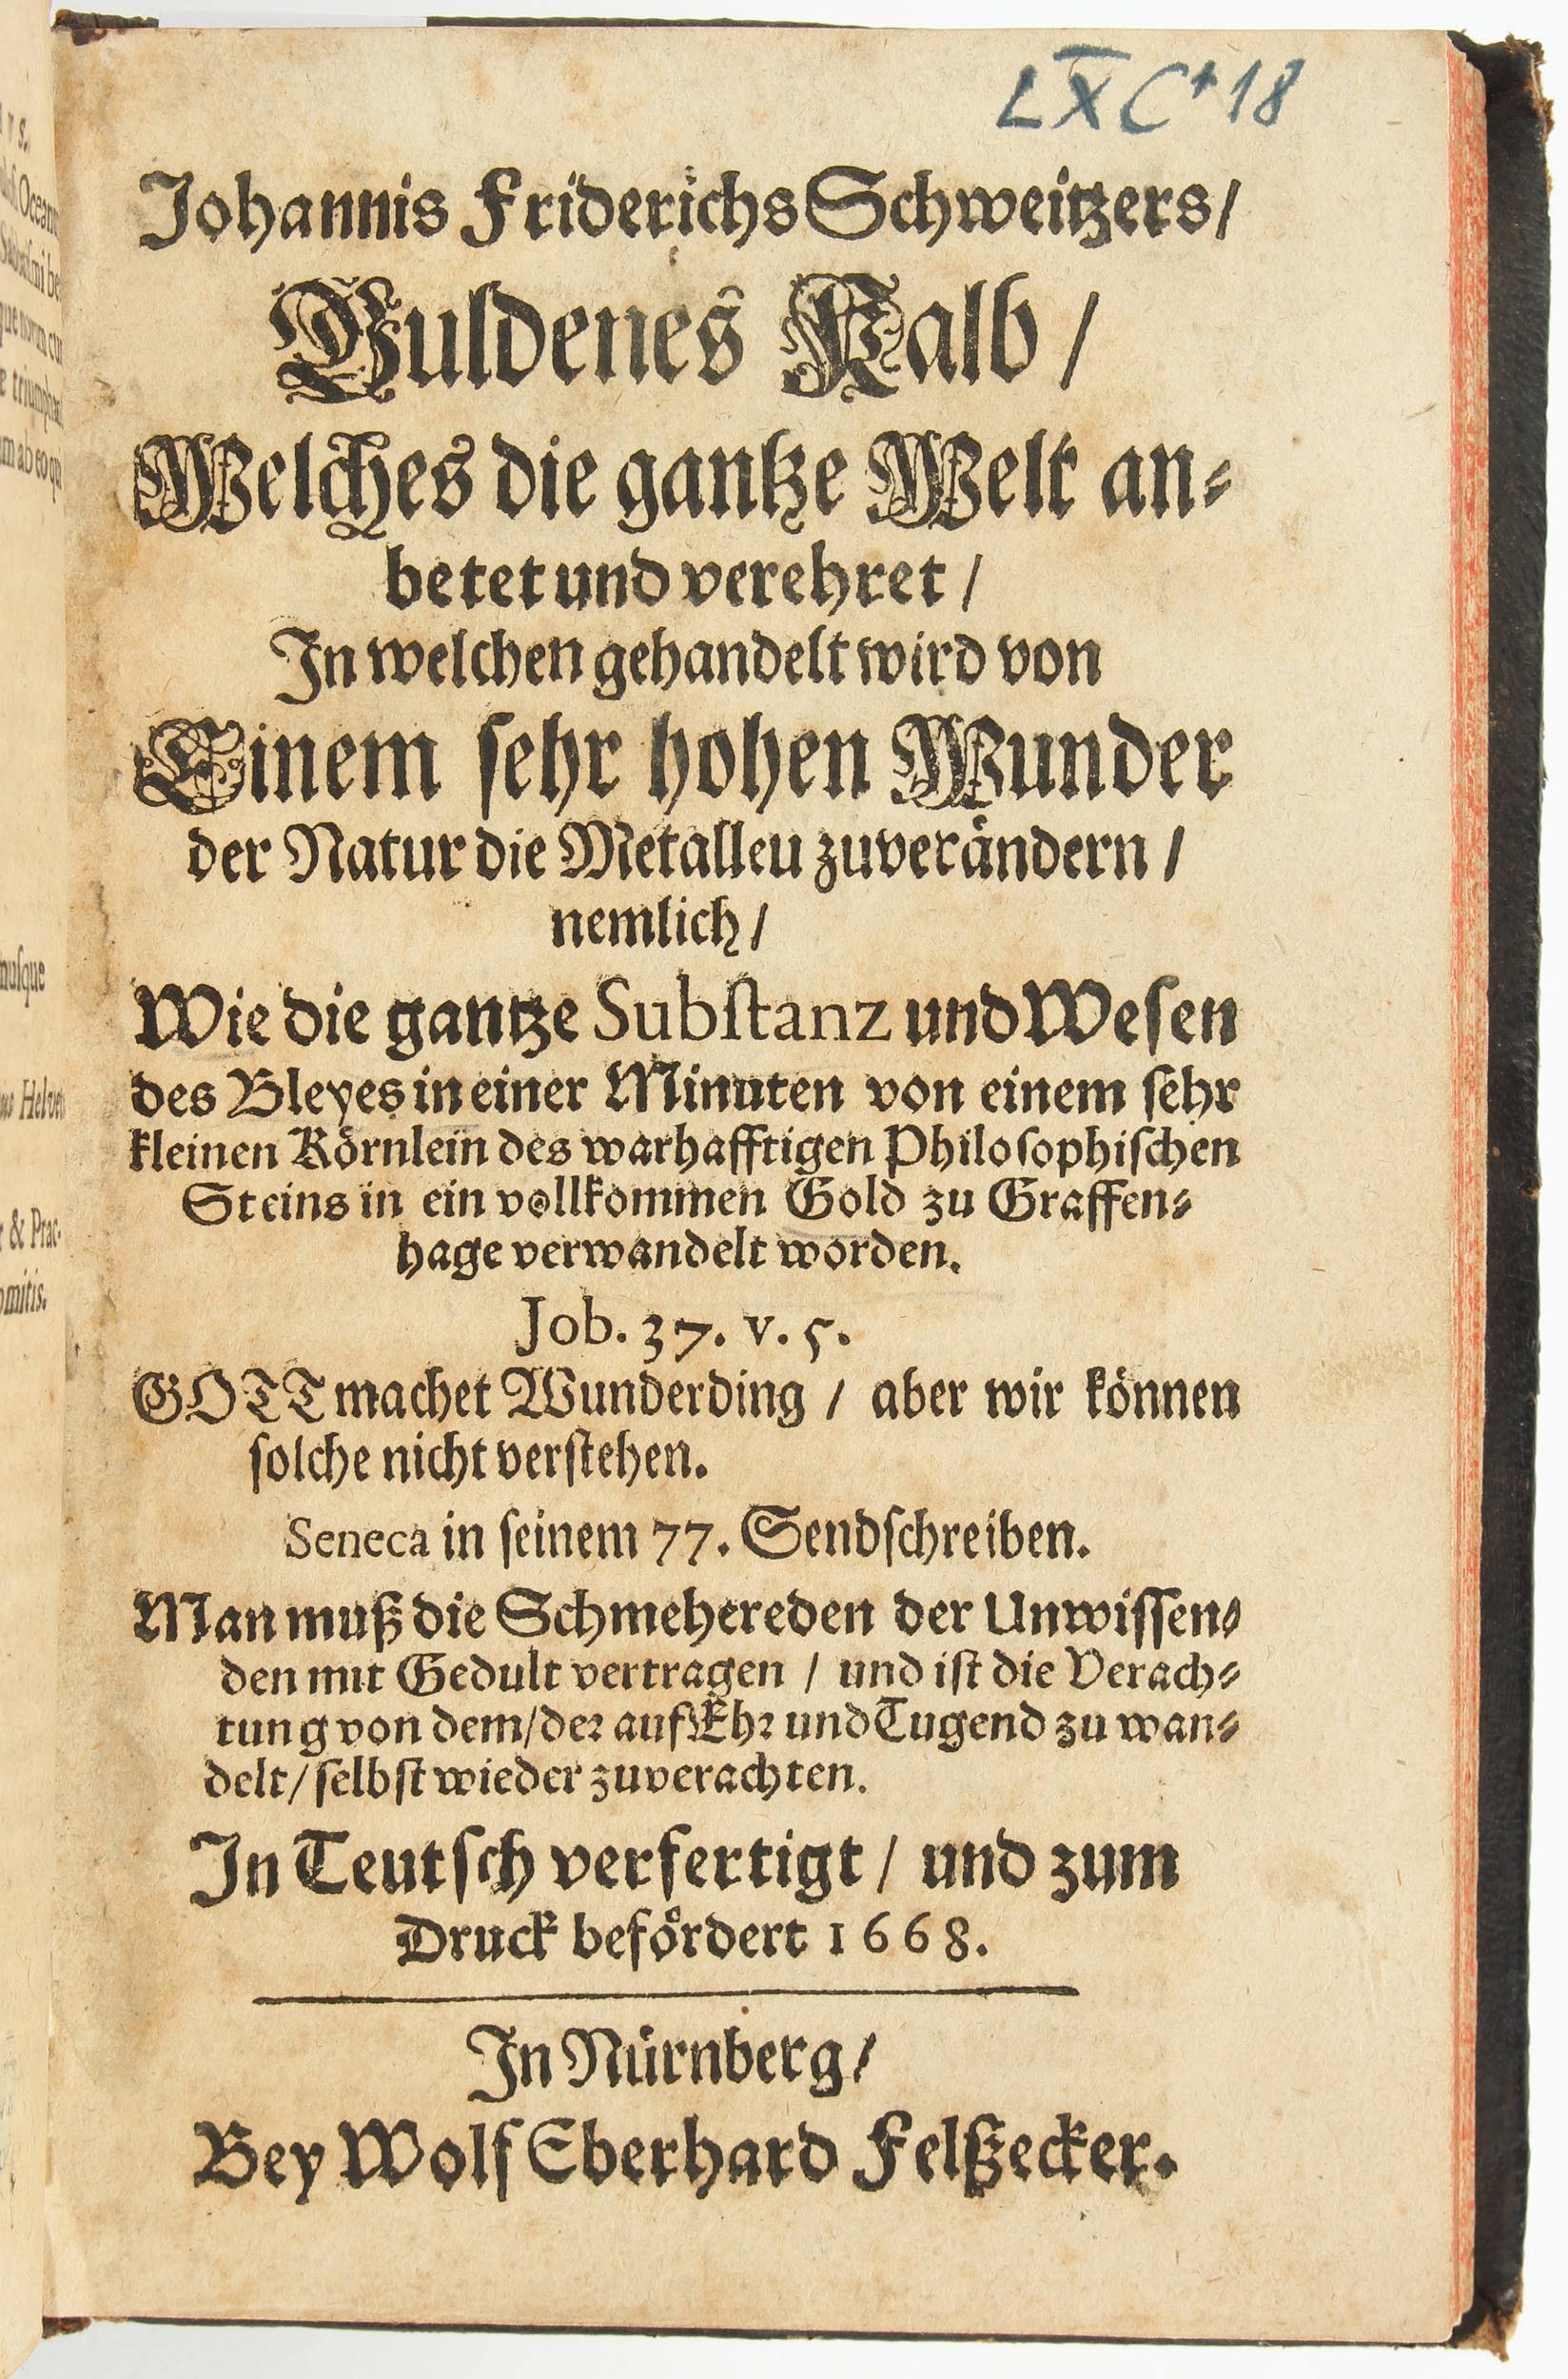 LXC+18
Johannis Friderichs Schweitzers/
Guldenes Kalb/
Welches die gantze Welt an-
betet und verehret/
In welchen gehandelt wird von
Einem sehr hohen Wunder
der Natur die Metalleu zuverändern/
nemlich/
Wie die gantze Substanz und Wesen
des Bleyes in einer Minuten von einem sehr
kleinen Körnlein des warhafftigen Philosophischen
Steins in ein vollkommen Gold zu Graffen-
hage verwandelt worden.
Job. 37. v. 5.
GOTT machet Wunderding / aber wir können
solche nicht verstehen.
Seneca in seinem 77. Sendschreiben.
Man muß die Schmehereden der Unwissen-
den mit Gedult vertragen / und ist die Verach-
tung von dem/der auf Ehr und Tugend zu wan-
delt/selbst wieder zuverachten.
In Teutsch verfertigt/ und zum
Druck befördert 1668.
In Nürnberg/
Bey Wolf Eberhard Felßecker.